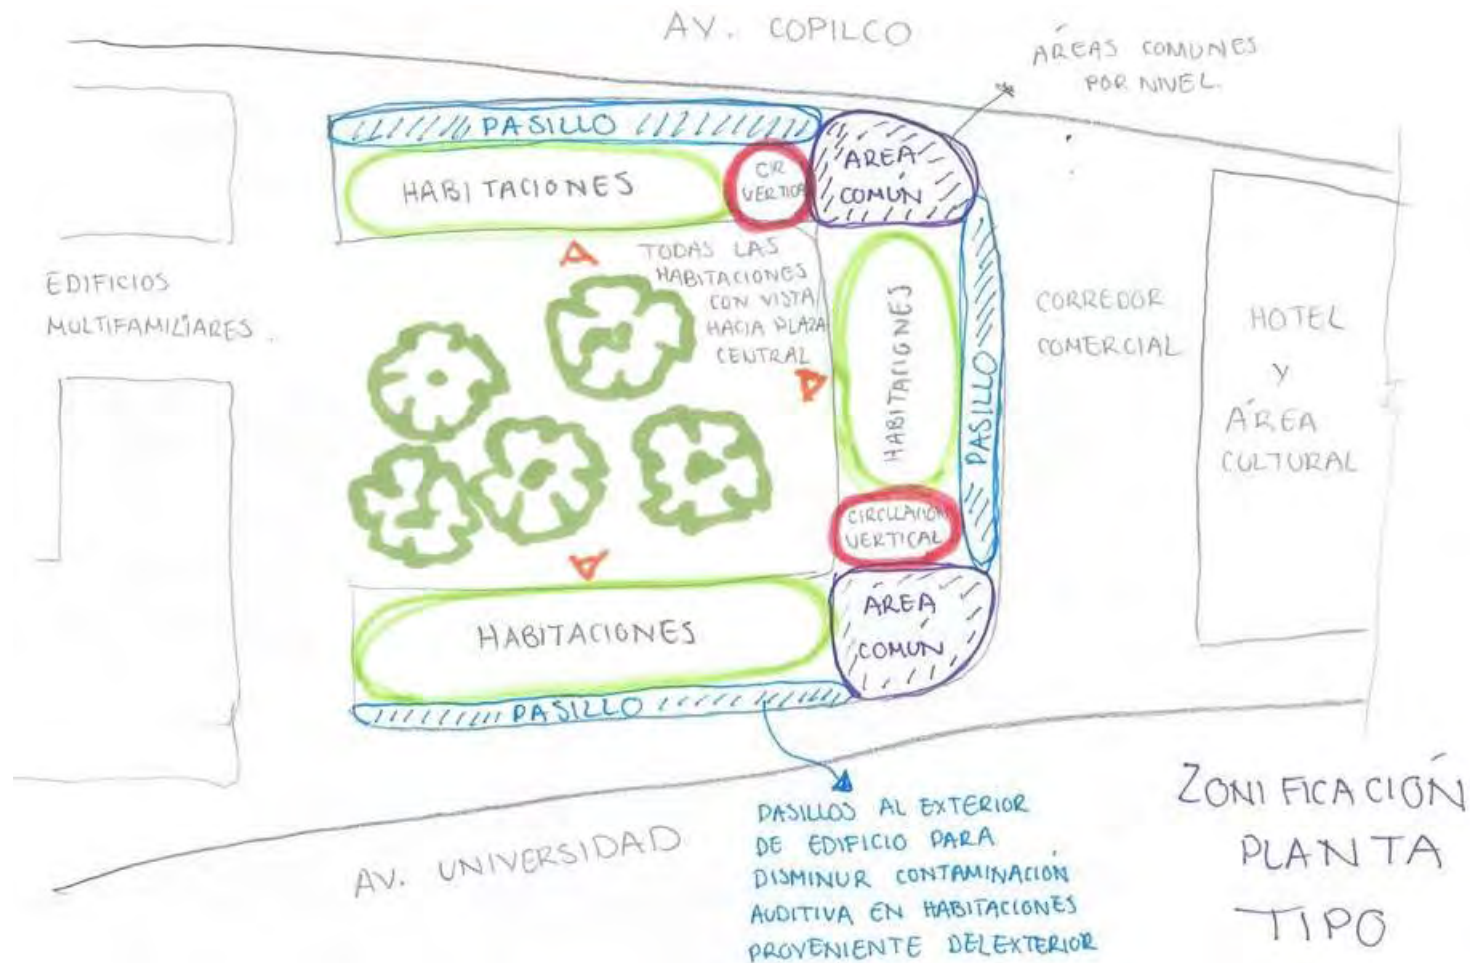 AV. COPILCO
ÁREAS COMUNES
POR NIVEL.
PASILLO
HABITACIONES
CIR
VERTICA
AREA
COMÚN
TODAS LAS
HABITACIONES
CON VISTA
HACIA PLAZA
CENTRAL
EDIFICIOS
MULTIFAMILIARES.
HABITACIONES
PASILLO
CORREDOR
COMERCIAL
HOTEL
Y
ÁREA
CULTURAL
CIRCULACION
VERTICAL
AREA
COMUN
HABITACIONES
PASILLO
AV. UNIVERSIDAD
PASILLOS AL EXTERIOR
DE EDIFICIO PARA
DISMINUR CONTAMINACIÓN
AUDITIVA EN HABITACIONES
PROVENIENTE DEL EXTERIOR
ZONIFICACIÓN
PLANTA
TIPO